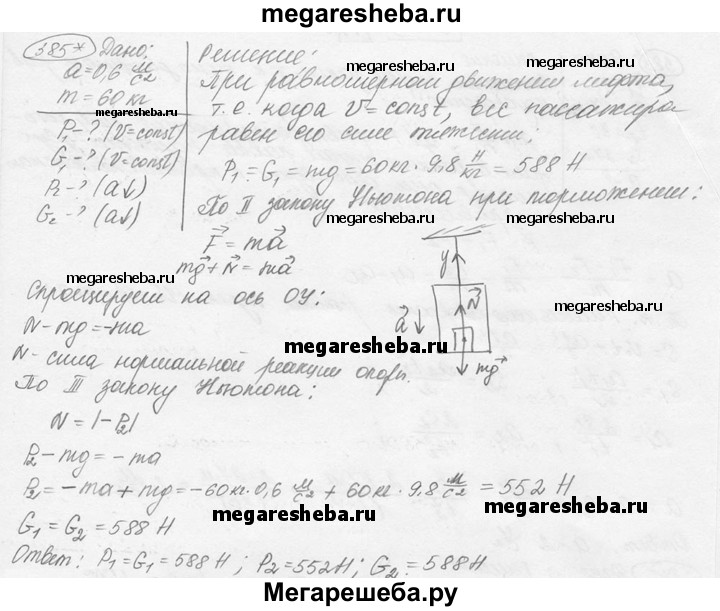 megaresheba.ru
385* Дано:
a = 0,6 м/с²
m = 60 кг
P₁ - ? (V = const)
G₁ - ? (V = const)
P₂ - ? (a↓)
G₂ - ? (a↓)
Решение:
При равномерном движении лифта,
т.е. когда V = const, вес пассажира
равен его силе тяжести:
P₁ = G₁ = mg = 60 кг · 9,8 Н/кг = 588 Н
По II закону Ньютона при торможении:
F⃗ = ma⃗
mg⃗ + N⃗ = ma⃗
Спроецируем на ось OY:
N - mg = -ma
N - сила нормальной реакции опоры.
По III закону Ньютона:
N = |-P₂|
P₂ - mg = -ma
P₂ = -ma + mg = -60 кг · 0,6 м/с² + 60 кг · 9,8 м/с² = 552 Н
G₁ = G₂ = 588 Н
Ответ: P₁ = G₁ = 588 Н; P₂ = 552 Н; G₂ = 588 Н
y
N⃗
a⃗
mg⃗
megaresheba.ru
megaresheba.ru
megaresheba.ru
megaresheba.ru
megaresheba.ru
megaresheba.ru
megaresheba.ru
megaresheba.ru
megaresheba.ru
megaresheba.ru
Мегарешеба.ру